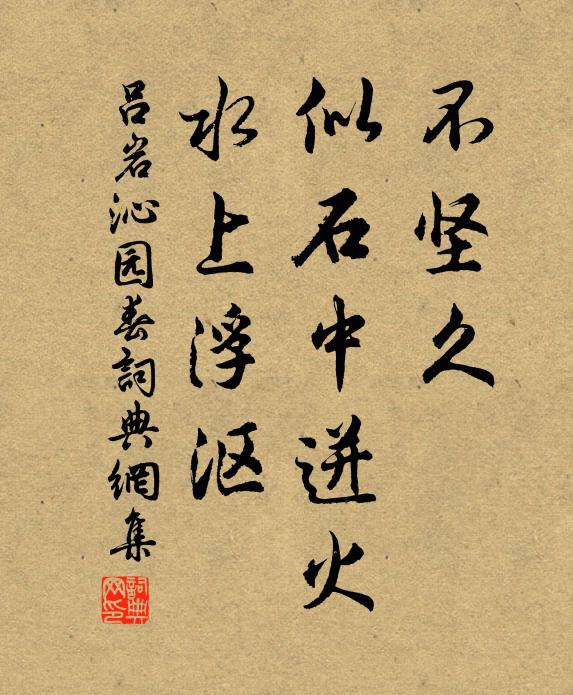 不坚久
似石中迸火
水上浮沤
吕岩沁园春詞典網集
詞典网印